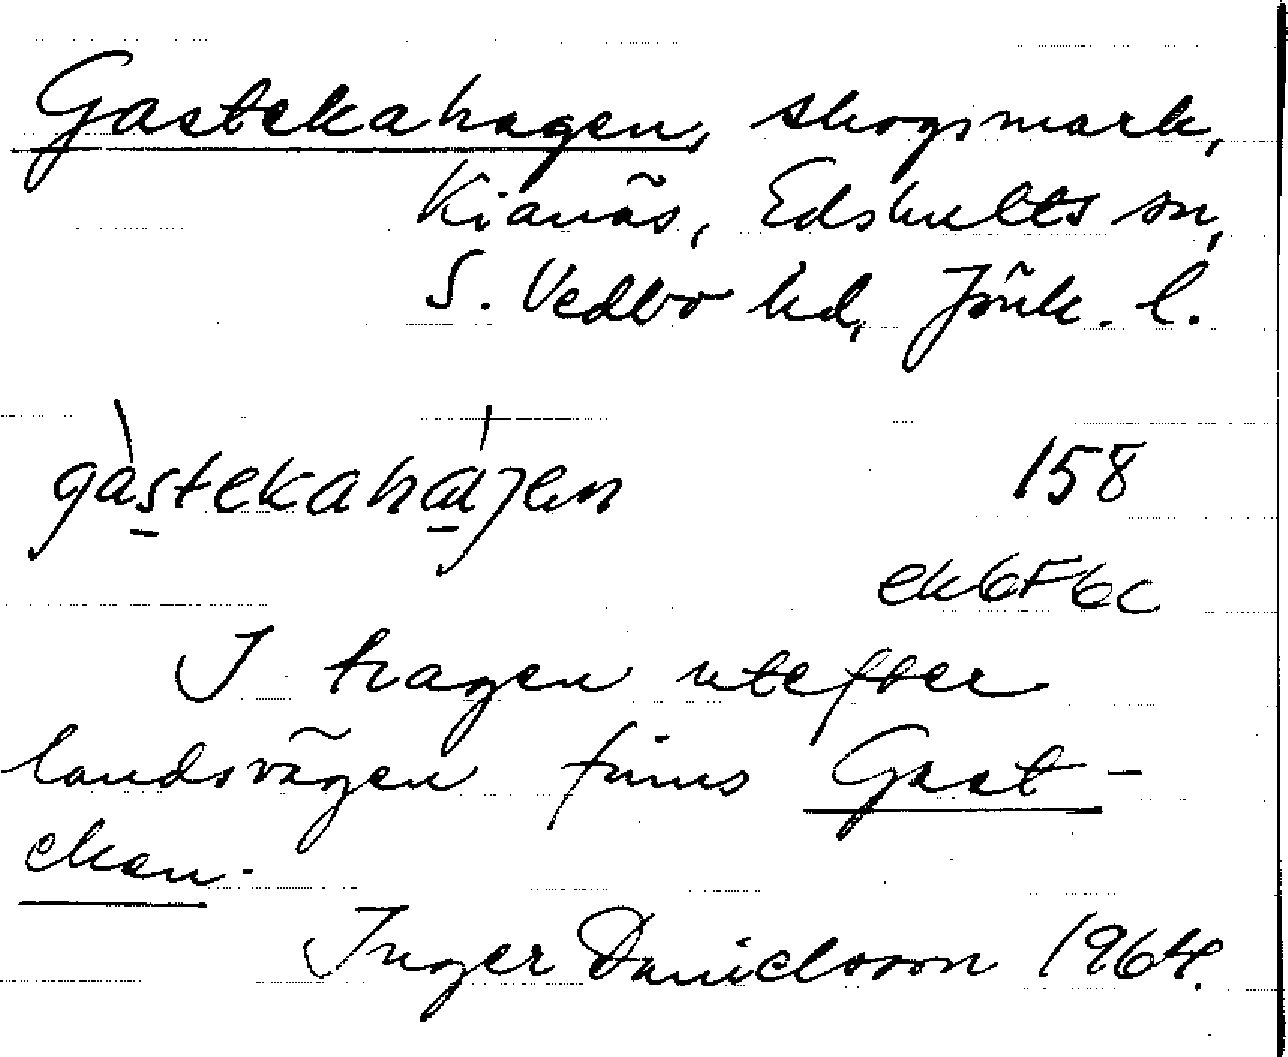 Gastekahagen, skogsmark,
Kianäs, Edshults sn,
S. Vedbo hd, Jönk. l.
gàstekahájen 158
ek6F6c
I hagen utefter
landsvägen finns Gast-
ekan.
Inger Danielsson 1964.